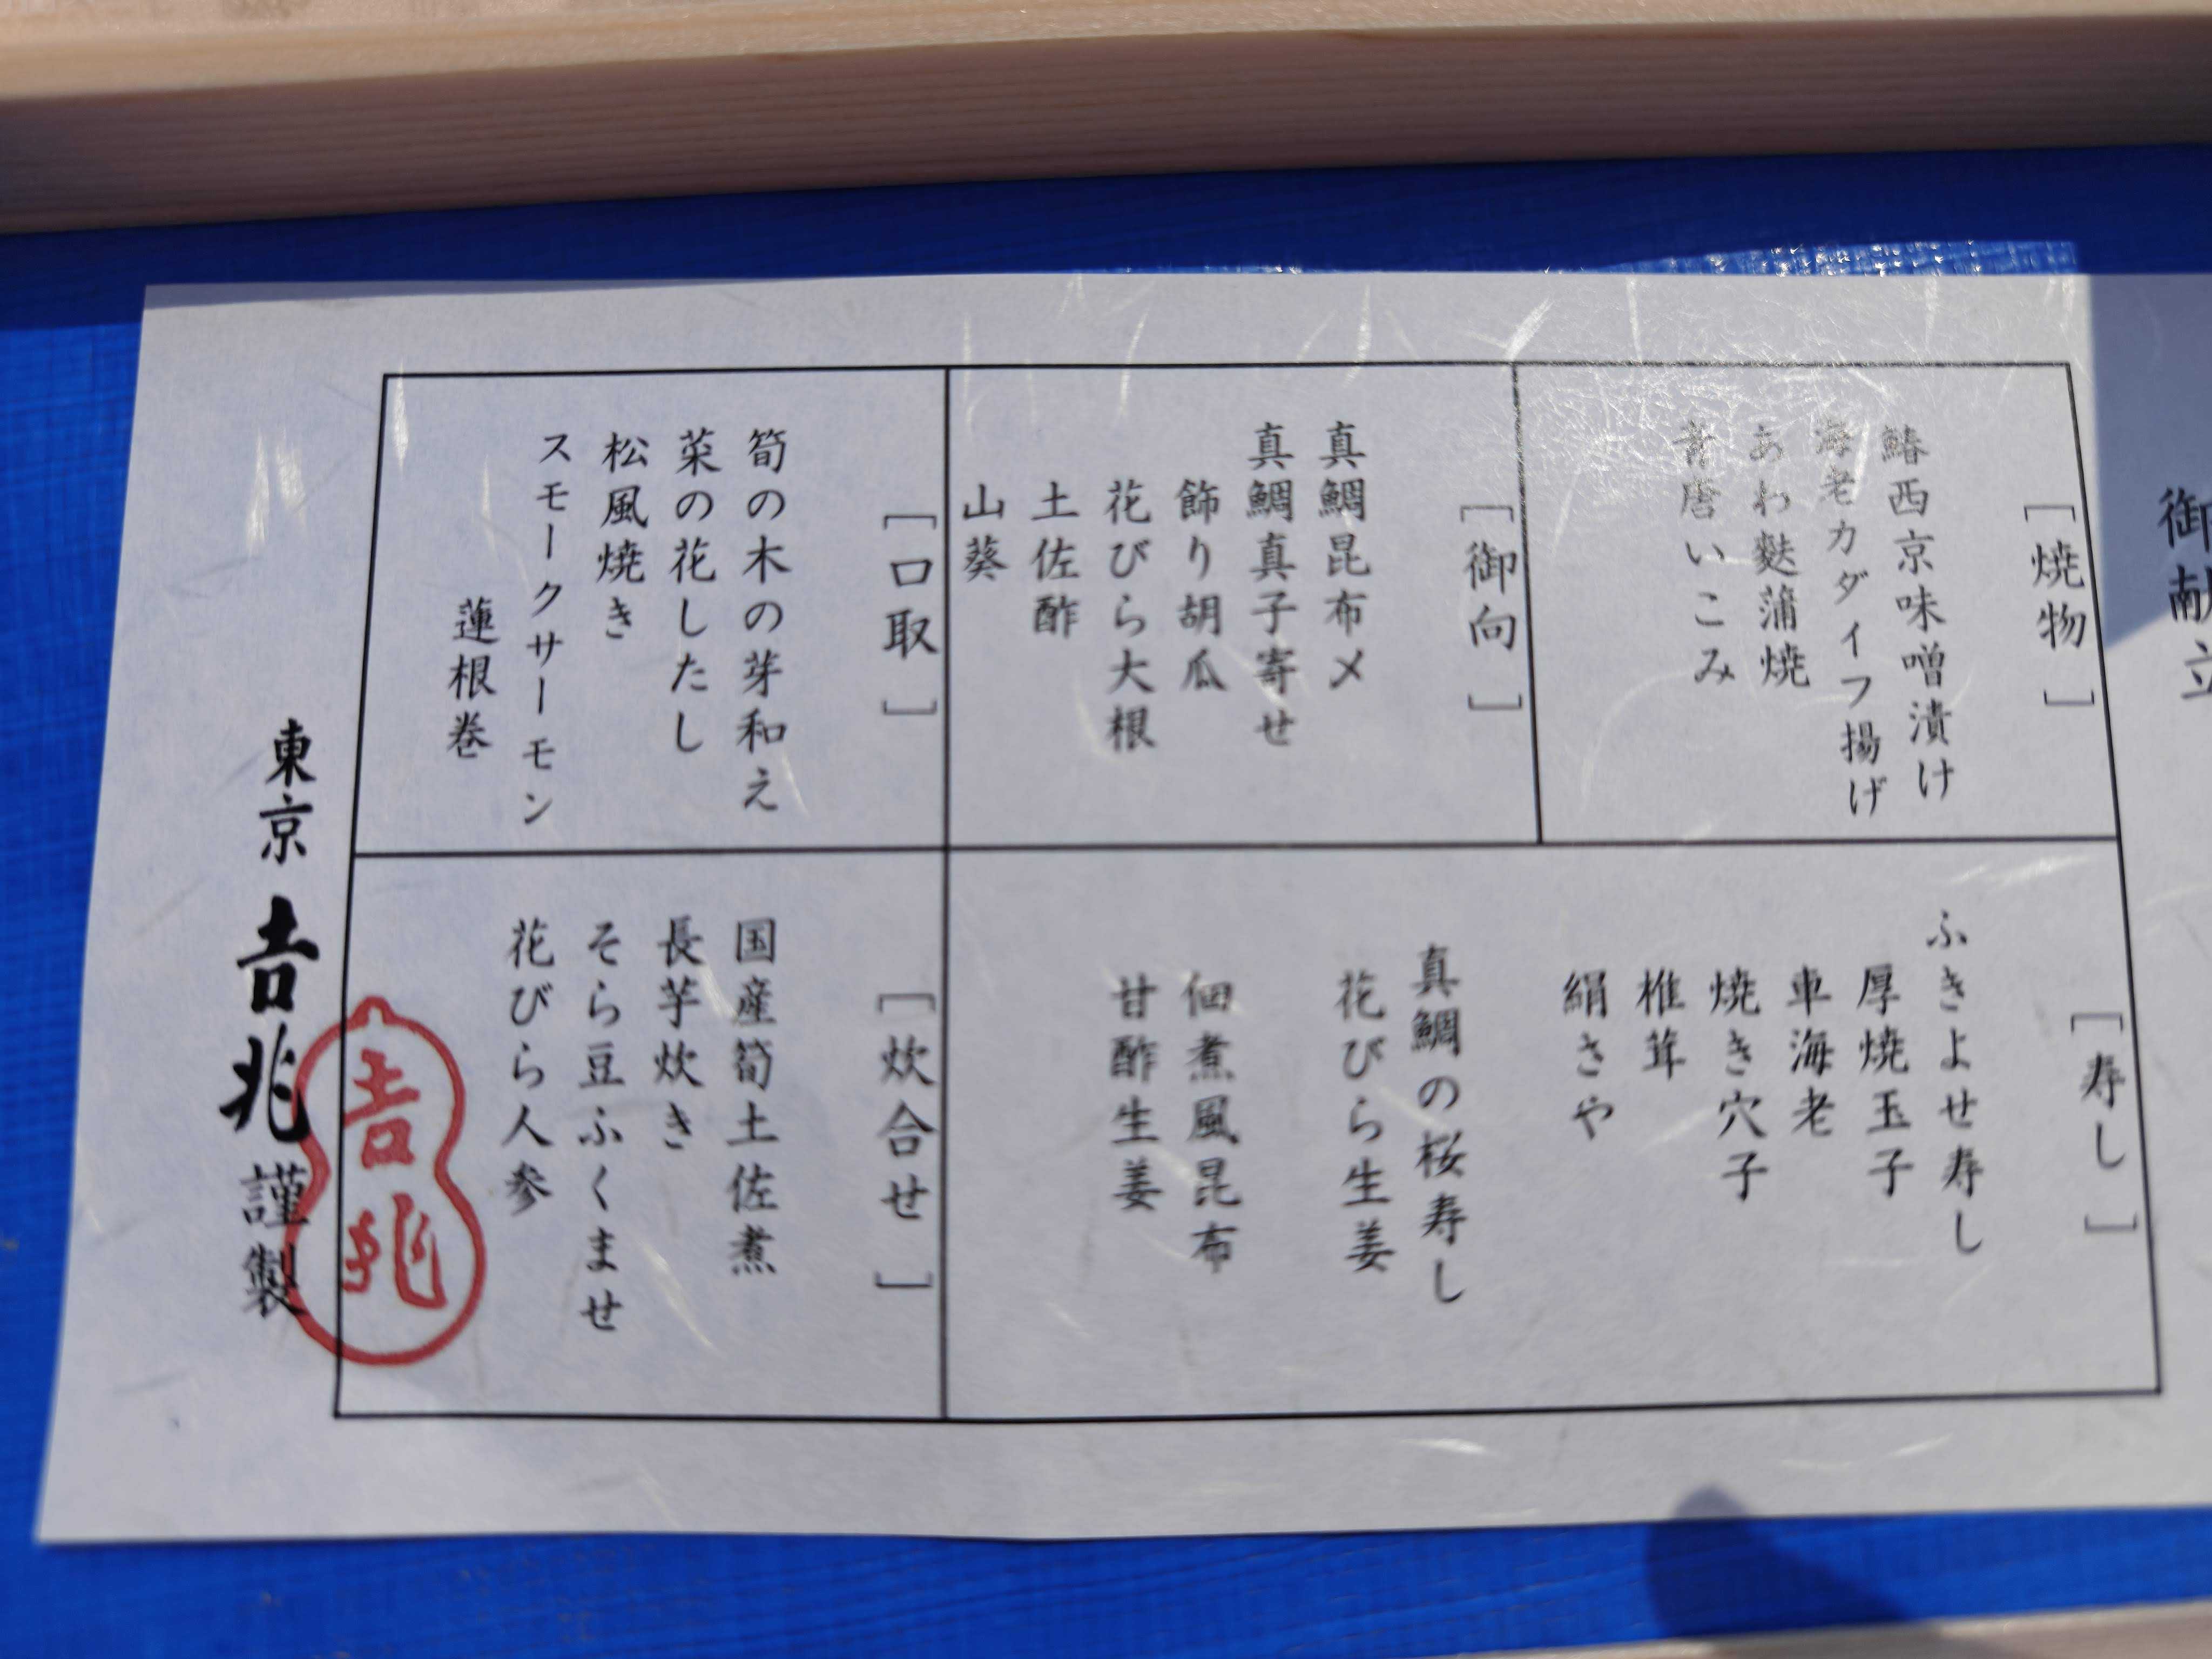 御献立
[焼物]
鰆西京味噌漬け
海老カダイフ揚げ
あわ麩蒲焼
青唐いこみ
[御向]
真鯛昆布〆
真鯛真子寄せ
飾り胡瓜
花びら大根
土佐酢
山葵
[口取]
筍の木の芽和え
菜の花したし
松風焼き
スモークサーモン
蓮根巻
[寿し]
ふきよせ寿し
厚焼玉子
車海老
焼き穴子
椎茸
絹さや
真鯛の桜寿し
花びら生姜
佃煮風昆布
甘酢生姜
[炊合せ]
国産筍土佐煮
長芋炊き
そら豆ふくませ
花びら人参
東京 𠮷兆 謹製
𠮷兆